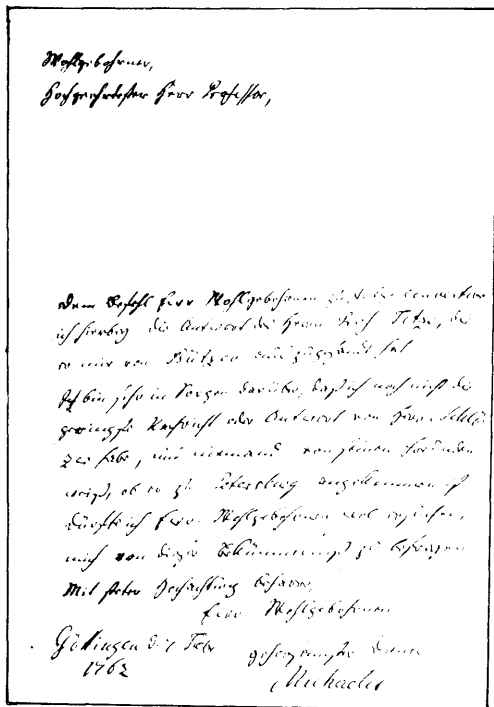 Wohlgebohrner,
Hochgeehrtester Herr Professor,
Dem Befehl Eurer Wohlgebohrnen zu Folge
ich hierbey die Antwort des Herrn Tetze, die
er mir von Bützow aus zugesandt hat
Ich bin sehr in Sorgen darüber, daß ich noch nicht die
geringste Nachricht oder Antwort von Herrn Schlö-
zer habe, und niemand von seinen Freunden
weiß, ob er zu Petersburg angekommen ist
Dürfte ich Eure Wohlgebohrnen wol ersuchen,
mich von dieser Bekümmerniß zu befreyen
Mit steter Hochachtung beharre,
Eurer Wohlgebohrnen
Göttingen d. 7 Febr gehorsamster Diener
1762 Michaelis